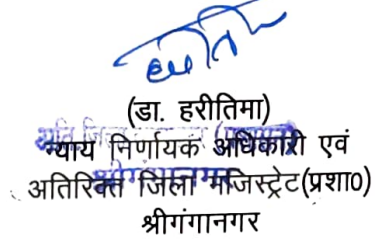 (डा. हरीतिमा)
न्याय निर्णायक अधिकारी एवं
अतिरिक्त जिला मजिस्ट्रेट(प्रशा0)
श्रीगंगानगर